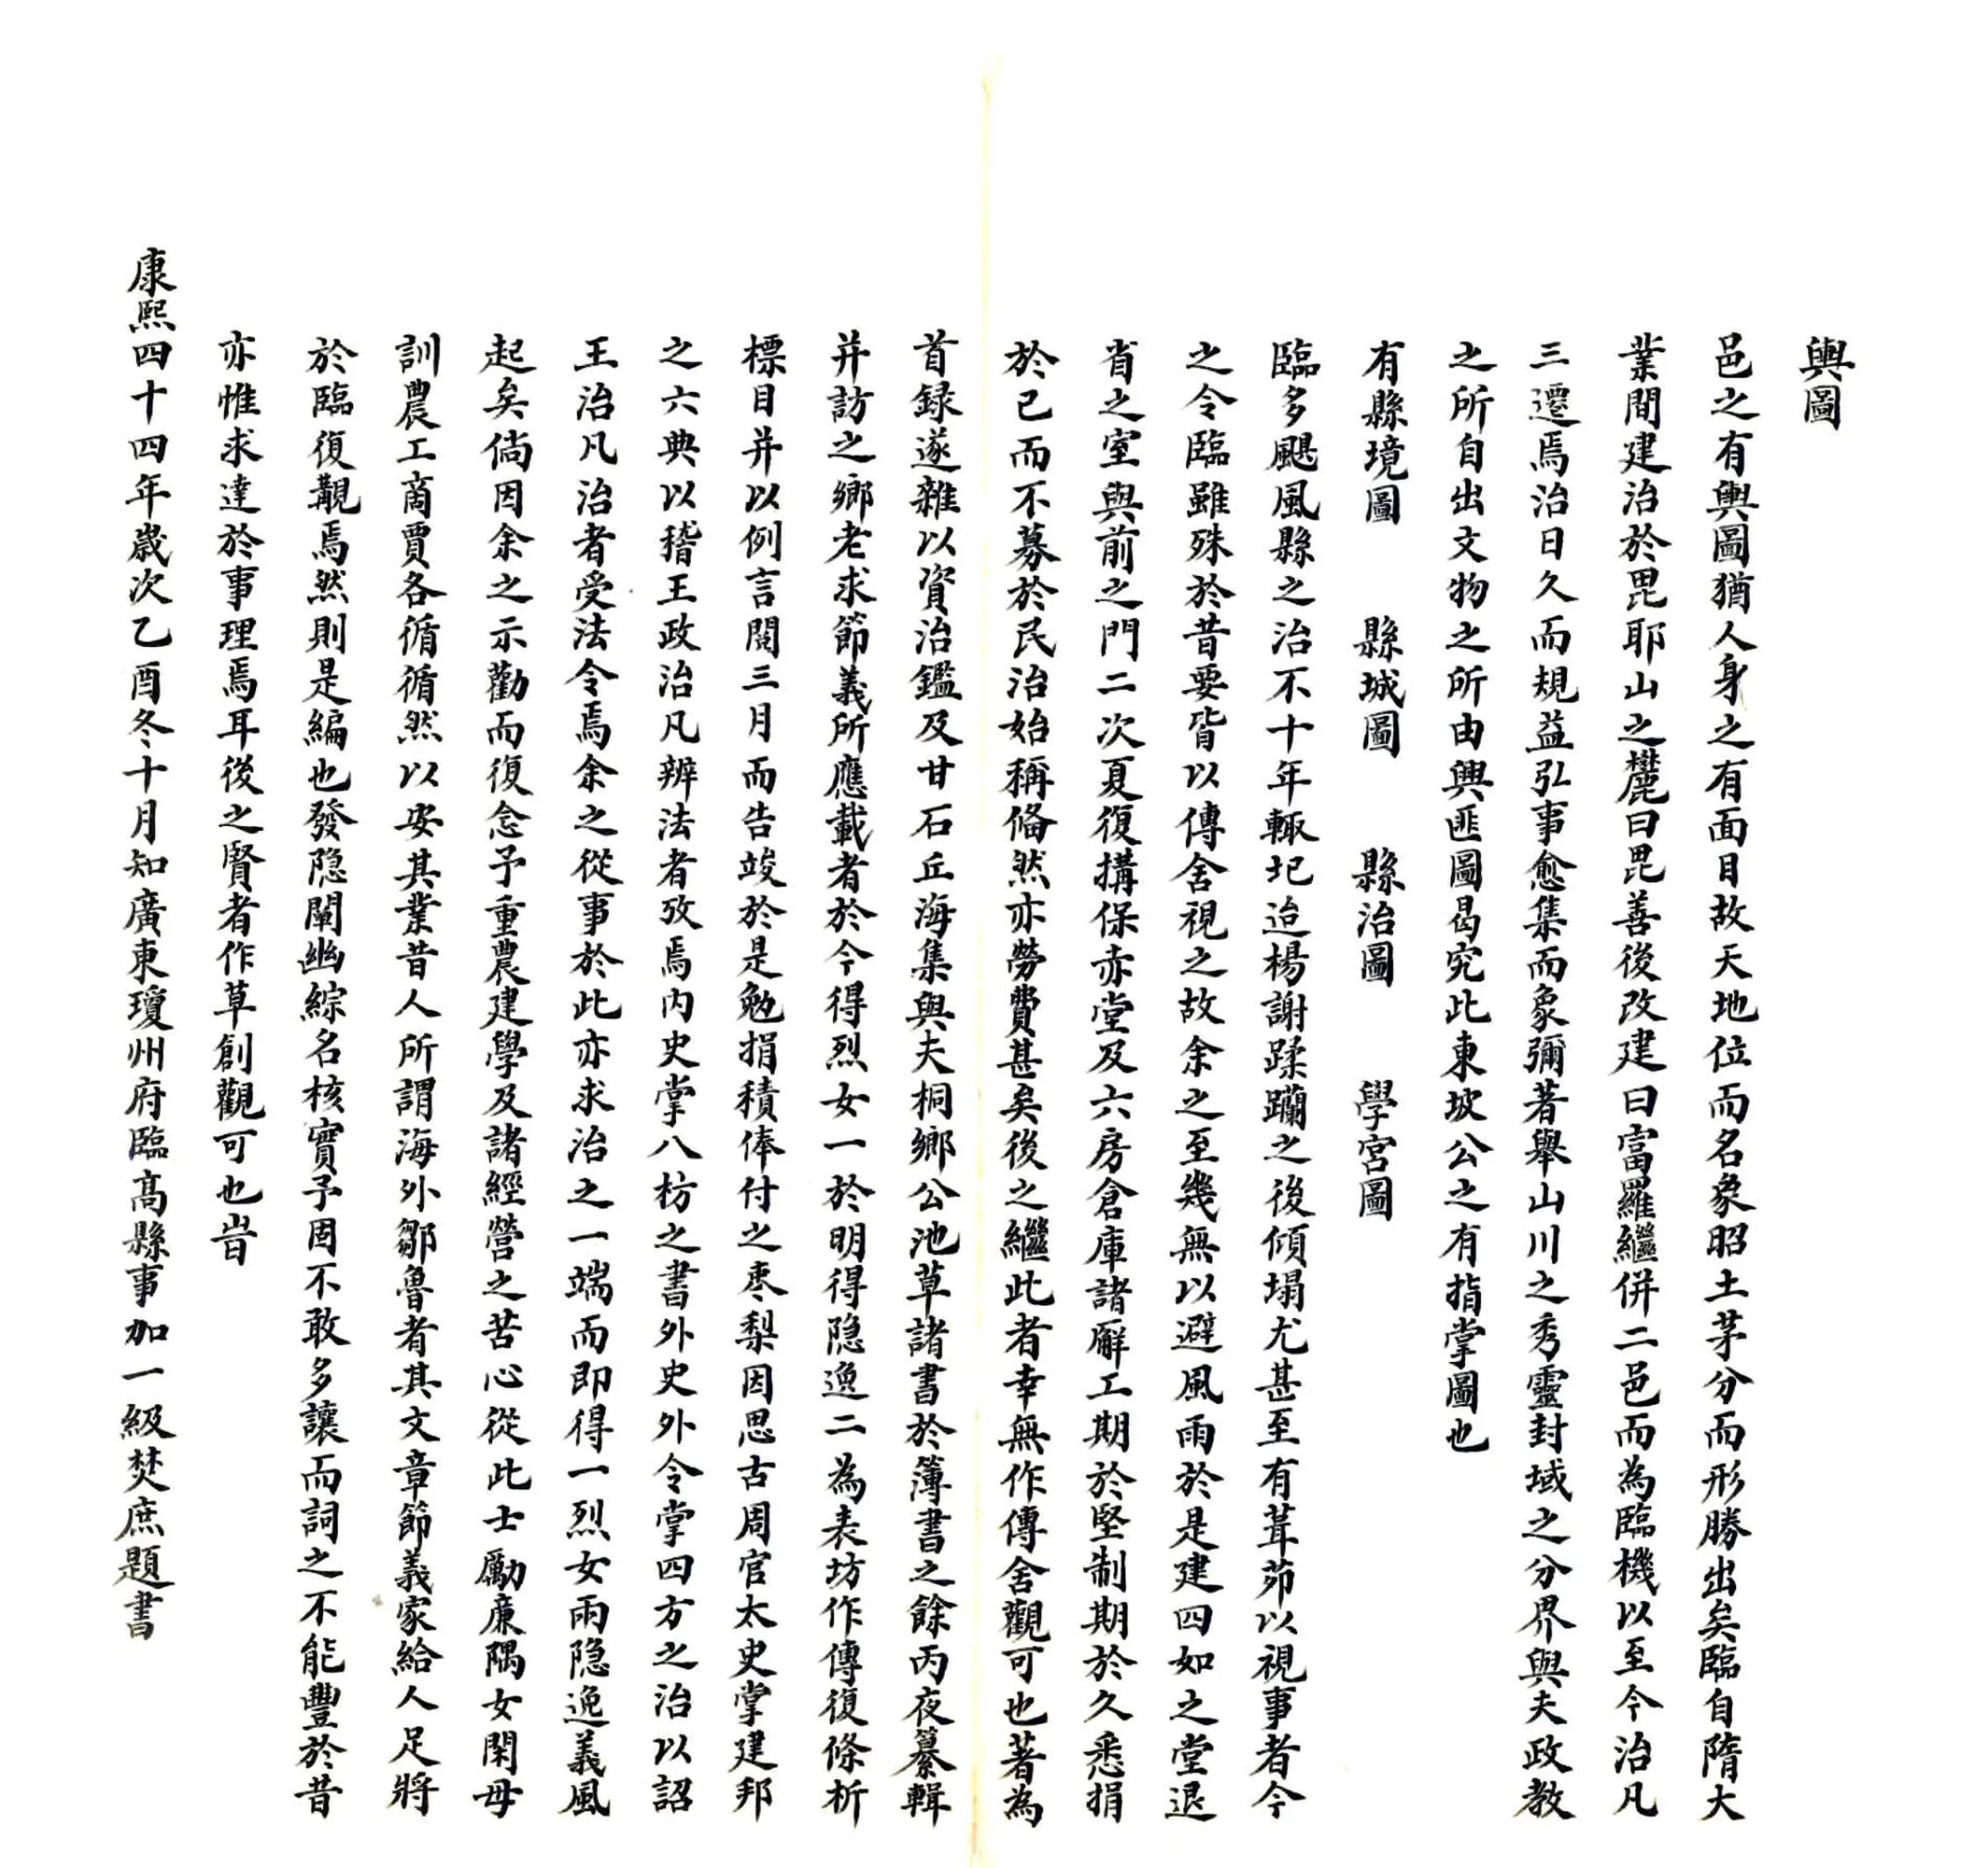 輿圖
邑之有輿圖猶人身之有面目故天地位而名象昭土茅分而形勝出矣臨自隋大
業間建治於毘耶山之麓曰毘善後改建曰富羅繼併二邑而為臨機以至今治凡
三遷焉治日久而規益弘事愈集而象彌著舉山川之秀靈封域之分界與夫政教
之所自出文物之所由興匪圖曷究此東坡公之有指掌圖也
有縣境圖　縣城圖　縣治圖　學宮圖
臨多颶風縣之治不十年輒圮迨楊謝蹂躪之後傾塌尤甚至有葺茆以視事者今
之令臨雖殊於昔要皆以傳舍視之故余之至幾無以避風雨於是建四如之堂退
省之室與前之門二次夏復搆保赤堂及六房倉庫諸廨工期於堅制期於久悉捐
於己而不募於民治始稱俻然亦勞費甚矣後之繼此者幸無作傳舍觀可也著為
首録遂雜以資治鑑及甘石丘海集與夫桐鄉公池草諸書於簿書之餘丙夜纂輯
并訪之鄉老求節義所應載者於今得烈女一於明得隐逸二為表坊作傳復條析
標目并以例言閱三月而告竣於是勉捐積俸付之枣梨因思古周官太史掌建邦
之六典以稽王政治凡辨法者攷焉内史掌八枋之書外史外令掌四方之治以詔
王治凡治者受法令焉余之從事於此亦求治之一端而即得一烈女兩隐逸義風
起矣倘因余之示勸而復念予重農建學及諸經營之苦心從此士勵廉隅女閑母
訓農工商賈各循循然以安其業昔人所謂海外鄒魯者其文章節義家給人足將
於臨復覯焉然則是編也發隐闡幽綜名核實予固不敢多讓而詞之不能豐於昔
亦惟求達於事理焉耳後之賢者作草創觀可也旹
康熙四十四年歲次乙酉冬十月知廣東瓊州府臨高縣事加一級樊庶題書